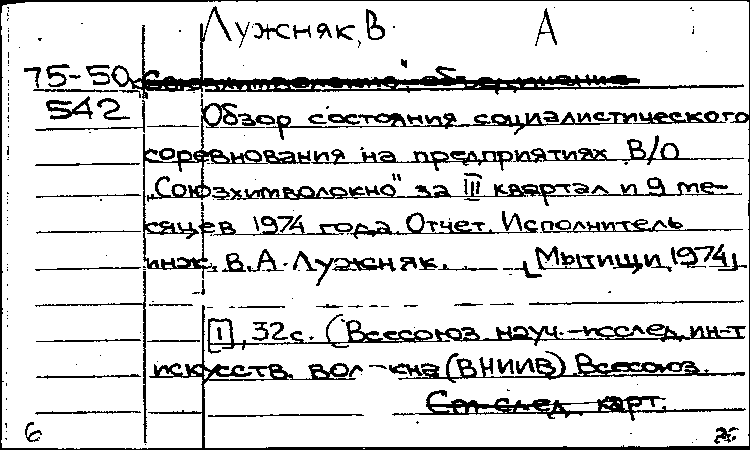 Лужняк, В. А
75-50 "Союзхимволокно", объединение
542 Обзор состояния социалистического
соревнования на предприятиях В/О
"Союзхимволокно" за III квартал и 9 ме-
сяцев 1974 года. Отчет. Исполнитель
инж. В.А. Лужняк. [Мытищи, 1974]
[1], 32с. (Всесоюз. науч.-исслед. ин-т
искусств. вол-кна (ВНИИВ) Всесоюз.
См. след. карт.
6